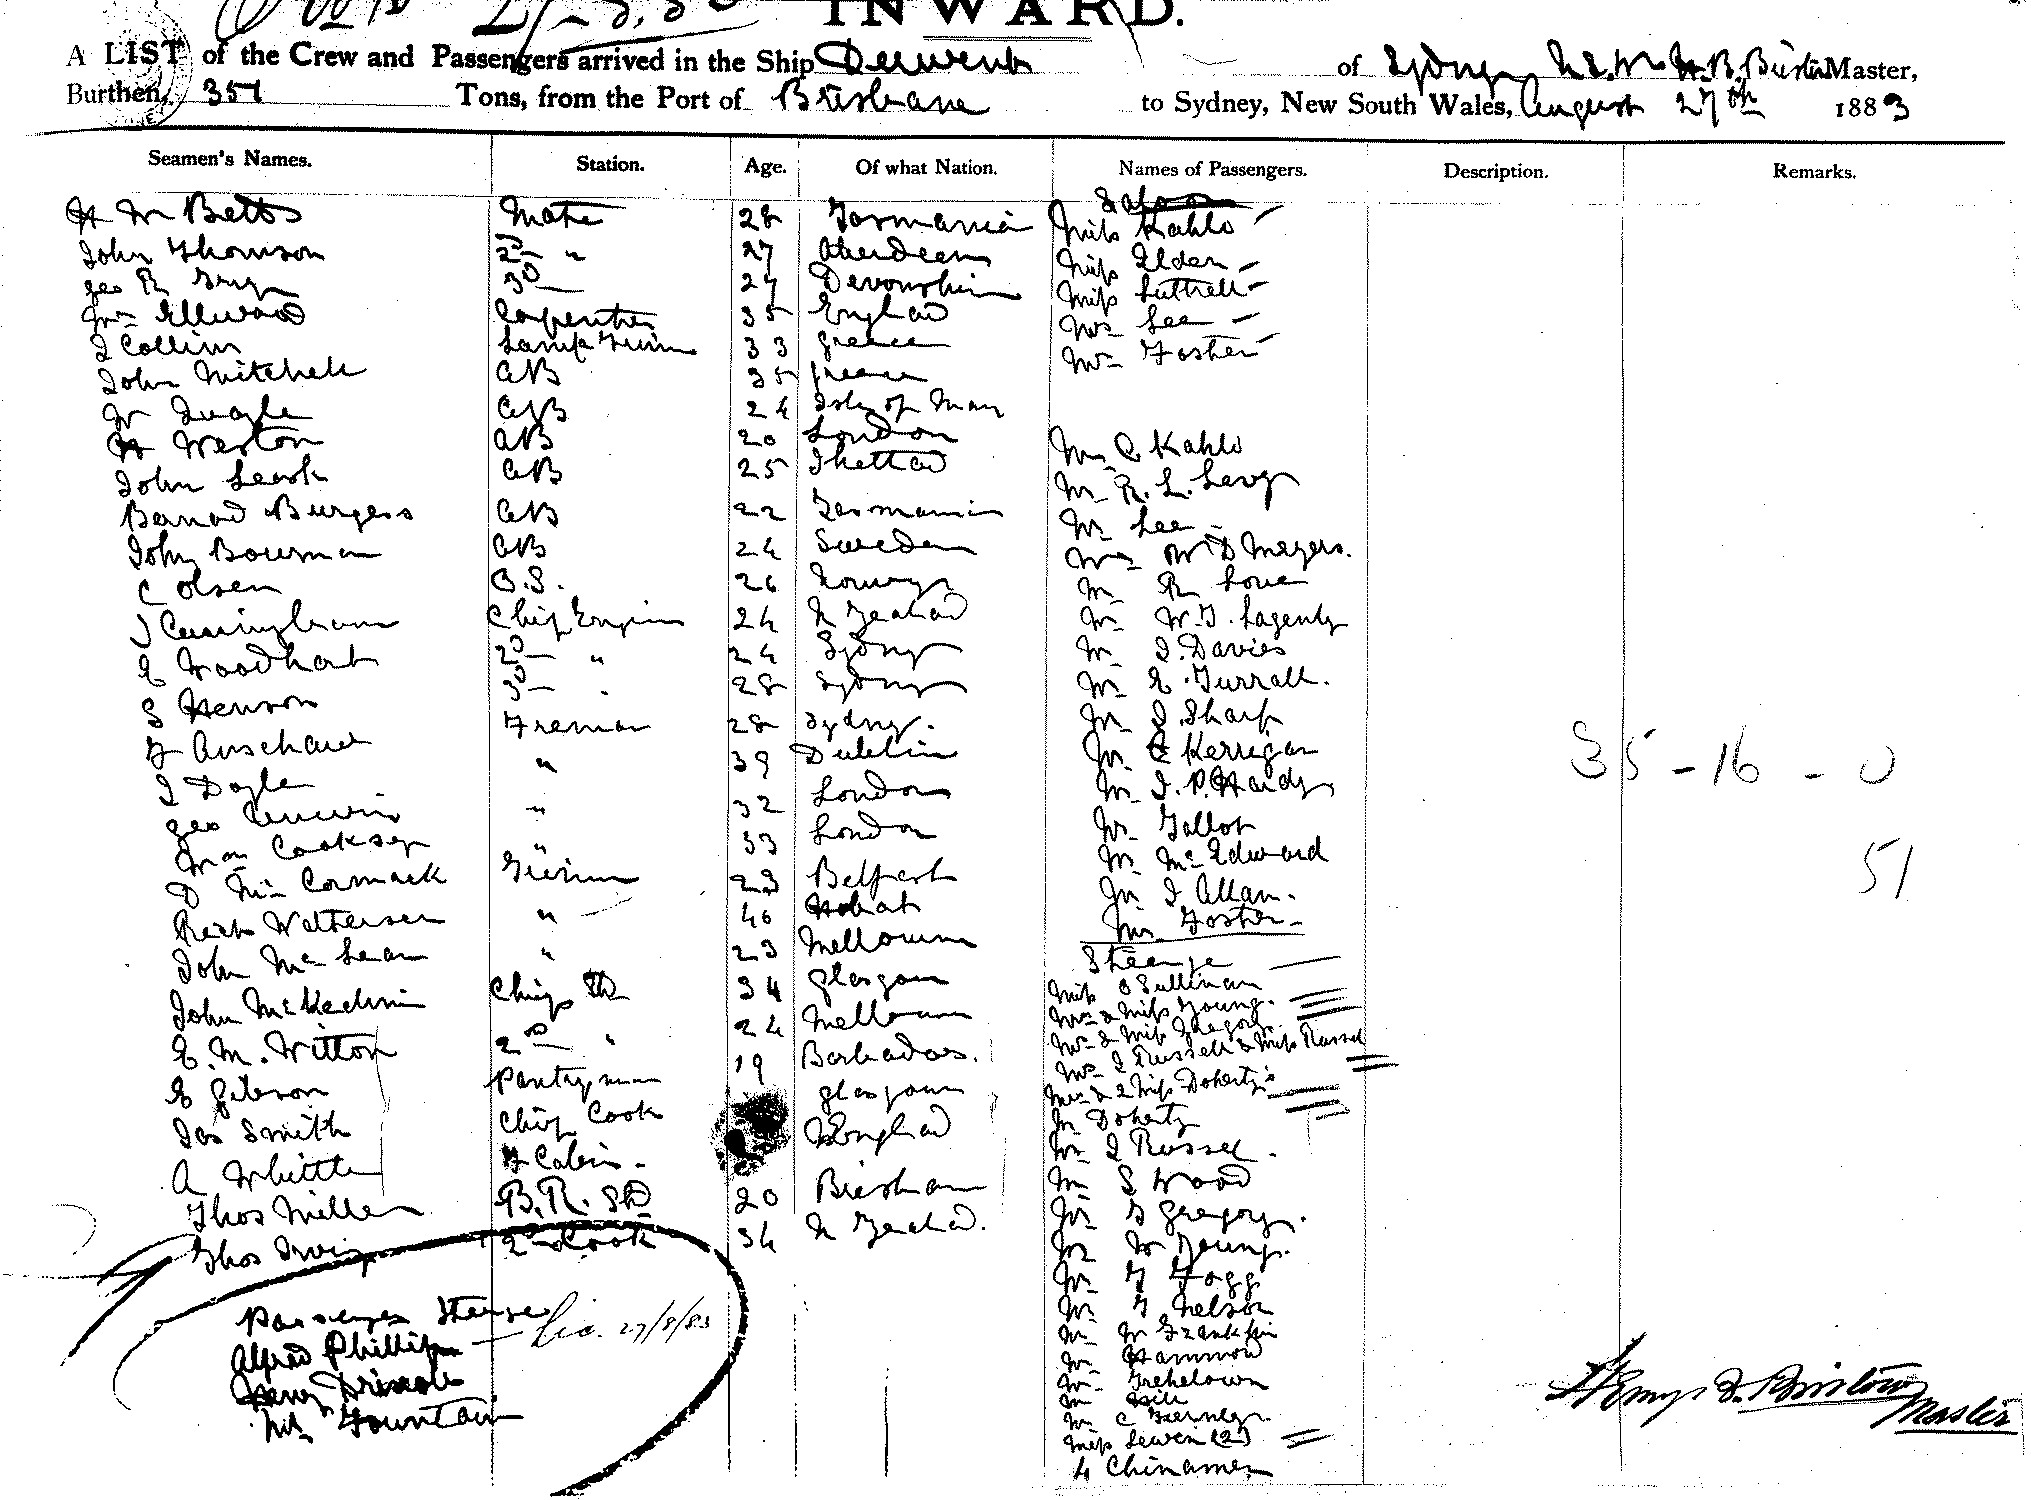 INWARD.
A LIST of the Crew and Passengers arrived in the Ship Derwent of Sydney N.S.W. Master,
Burthen, 351 Tons, from the Port of Brisbane to Sydney, New South Wales, August 27th 1883
Seamen's Names. Station. Age. Of what Nation. Names of Passengers. Description. Remarks.
Saloon
H W Betts Mate 28 Tasmania Miss Kahlo
John Thomson 2D " 27 Aberdeen Miss Elder
Geo R 3D 27 Devonshire Miss Luttrell
Wm Ellwood Carpenter 35 England Mrs Lee
J Collins Lamp Trim 33 Greece Mrs Foster
John Mitchell AB 35 Greece
W Quayle AB 24 Isle of Man
H Weston AB 20 London Mr C Kahlo
John Leask AB 25 Shetland Mr R. L. Levy
Barnard Burgess AB 22 Tasmania Mr Lee
John Bowman AB 24 Sweden Mr W D Meyers.
C Olsen O.S. 26 Norway Mr R Love
J Cunningham Chief Engin 24 N Zealand Mr W. J. Lagenty
E Woodhart 2D " 24 Sydney Mr J. Davies
S Henson 3D " 28 Sydney Mr E. Turrall.
F Fireman 28 Sydney. Mr J. Sharp
J Doyle " 39 Dublin Mr Kerrigan
Geo Unwin " 32 London Mr J. P. Hardy
Wm Cooksey " 33 London Mr Tallot
D McCormack Trimmer 23 Belfast Mr McEdward
Rich Wattersen " 40 Hobart Mr J Allan.
John McLean " 23 Melbourne Mr Foster
Steerage
John McKechnie Chief Std 34 Glasgow Miss O'Sullivan
E. M. Witton 2nd " 24 Melbourne Mrs & Miss Young.
E Gibson Pantryman 19 Barbadoes. Mrs & Miss Gregory
Jas Smith Chief Cook Glasgow Mrs J Russell & Miss Russel
A Whittle F Cabin. England Mrs & 2 Miss Doherty's
Thos Miller B. R. Std 20 Brisbane Mr Doherty
Thos Irving 2nd Cook 34 N Zealand. Mr J Russel.
Mr S Wood
Mr G Gregory.
Mr W Young.
Mr T Fogg
Mr T Nelson
Mr W Franklin
Mr Hammond
Mr Trehelown
Mr Hill
Mr C
Miss Lewin (2)
4 Chinamen
35 - 16 - 0
51
Passenger Steerage
Alfred Phillips 27/8/83
Henry Driscoll
Mr Fountain
Henry J. Bristow
Master